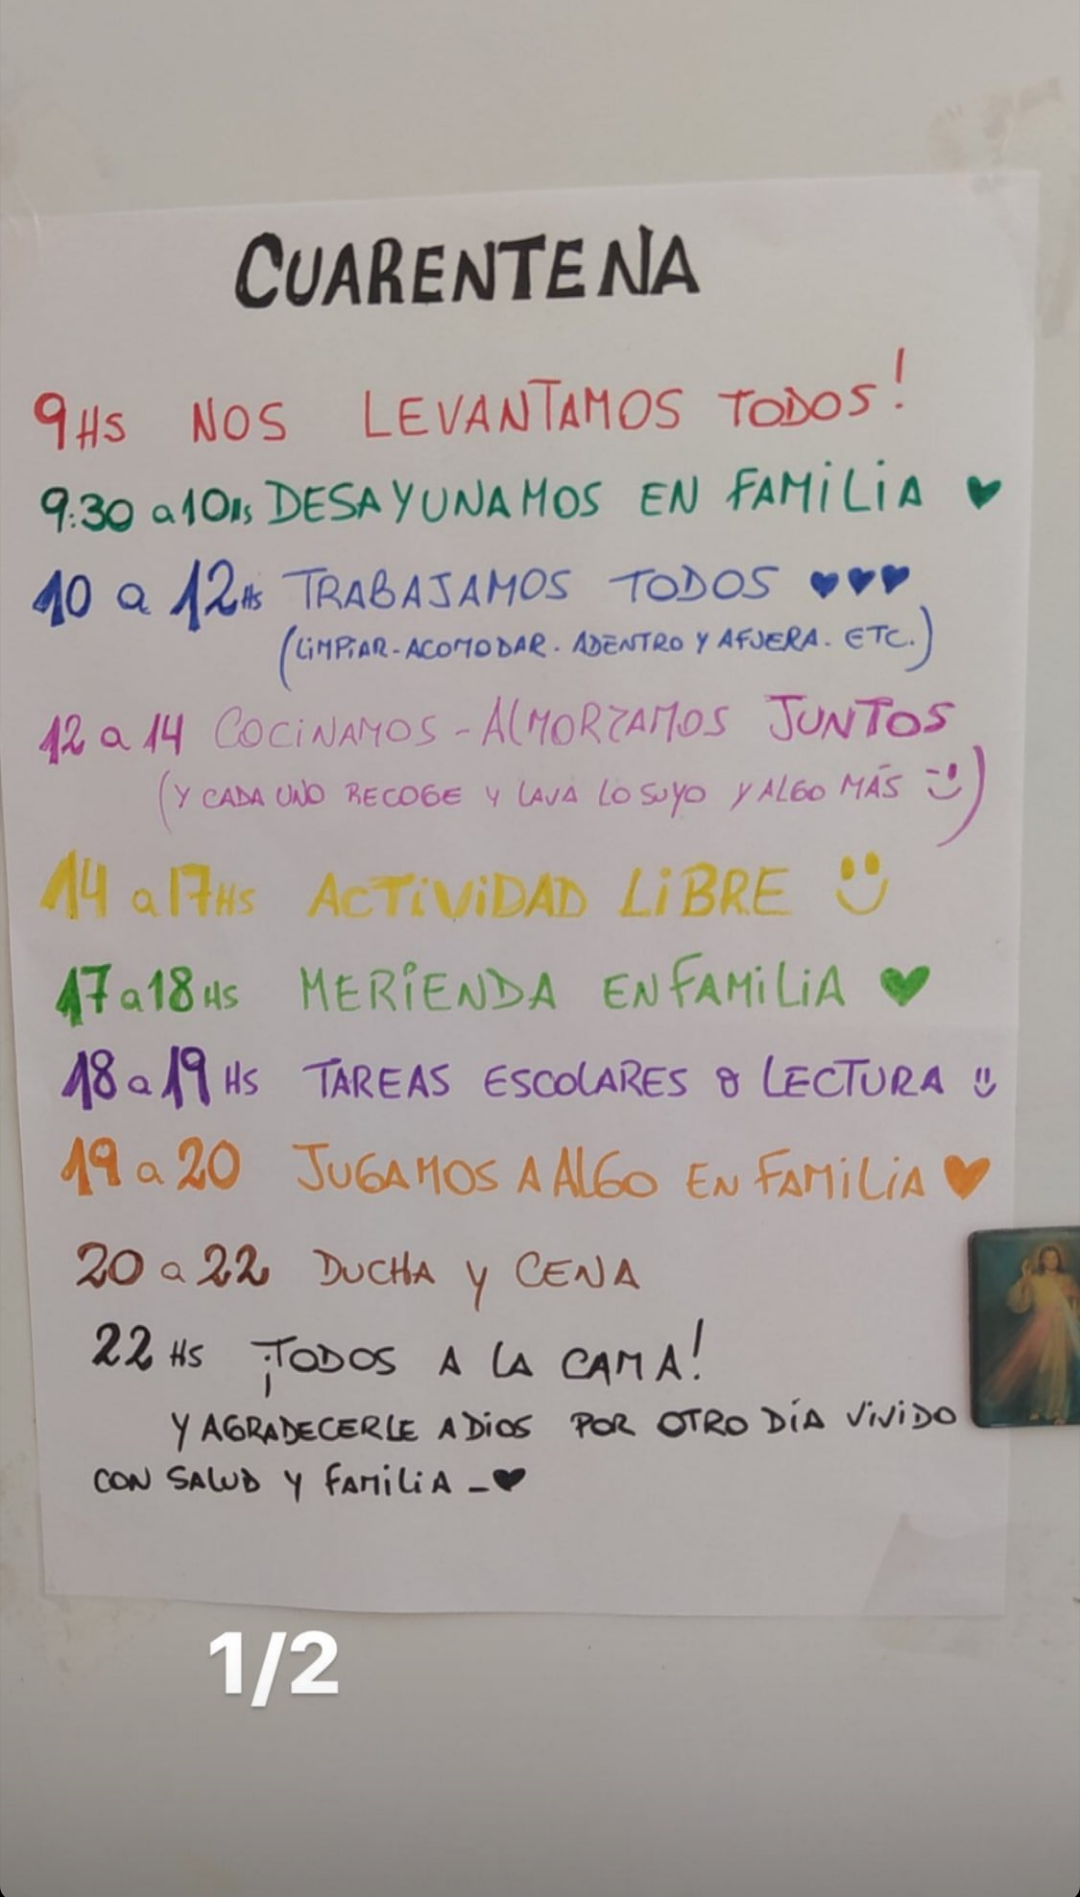 CUARENTENA
9HS NOS LEVANTAMOS TODOS!
9:30 a 10Hs DESAYUNAMOS EN FAMILIA ♥
10 a 12Hs TRABAJAMOS TODOS ♥♥♥
(LIMPIAR-ACOMODAR. ADENTRO Y AFUERA. ETC.)
12 a 14 COCINAMOS-ALMORZAMOS JUNTOS
(Y CADA UNO RECOGE Y LAVA LO SUYO Y ALGO MÁS :))
14 a 17HS ACTIVIDAD LIBRE :)
17 a 18 HS MERIENDA EN FAMILIA ♥
18 a 19 HS TAREAS ESCOLARES O LECTURA :)
19 a 20 JUGAMOS A ALGO EN FAMILIA ♥
20 a 22 DUCHA Y CENA
22 HS ¡TODOS A LA CAMA!
Y AGRADECERLE A DIOS POR OTRO DÍA VIVIDO
CON SALUD Y FAMILIA - ♥
1/2